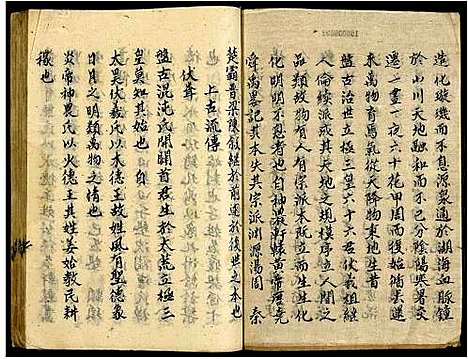 造化璇璣而不息源泉通於湖海血脉鐘
於山川天地融和而不已分陰陽寒暑交
遷一晝一夜六十花甲周而復始循還
來萬物育焉氣從天降物東地生昔
盤古治世立極三皇六十六君伏羲組継
人倫續派或其天地之規模序立人間之
品類故物有人有宗原本正而生生化
化物大不忍者也自神農軒轅黃帝唐堯
舜禹畧記其本失共宗派渊源湯周 秦
楚翁黄梁陳叙継於前通於後世之本也
上古流傳
伏聋
盤古混沌氏開闢首君生於太荒立極三
皇莫知其始也
太昊伏羲氏以木德王故姓風有聖德象
日月之明類萬物之情也
炎帝神農氏以火德主其姓姜始教民耕
稼也